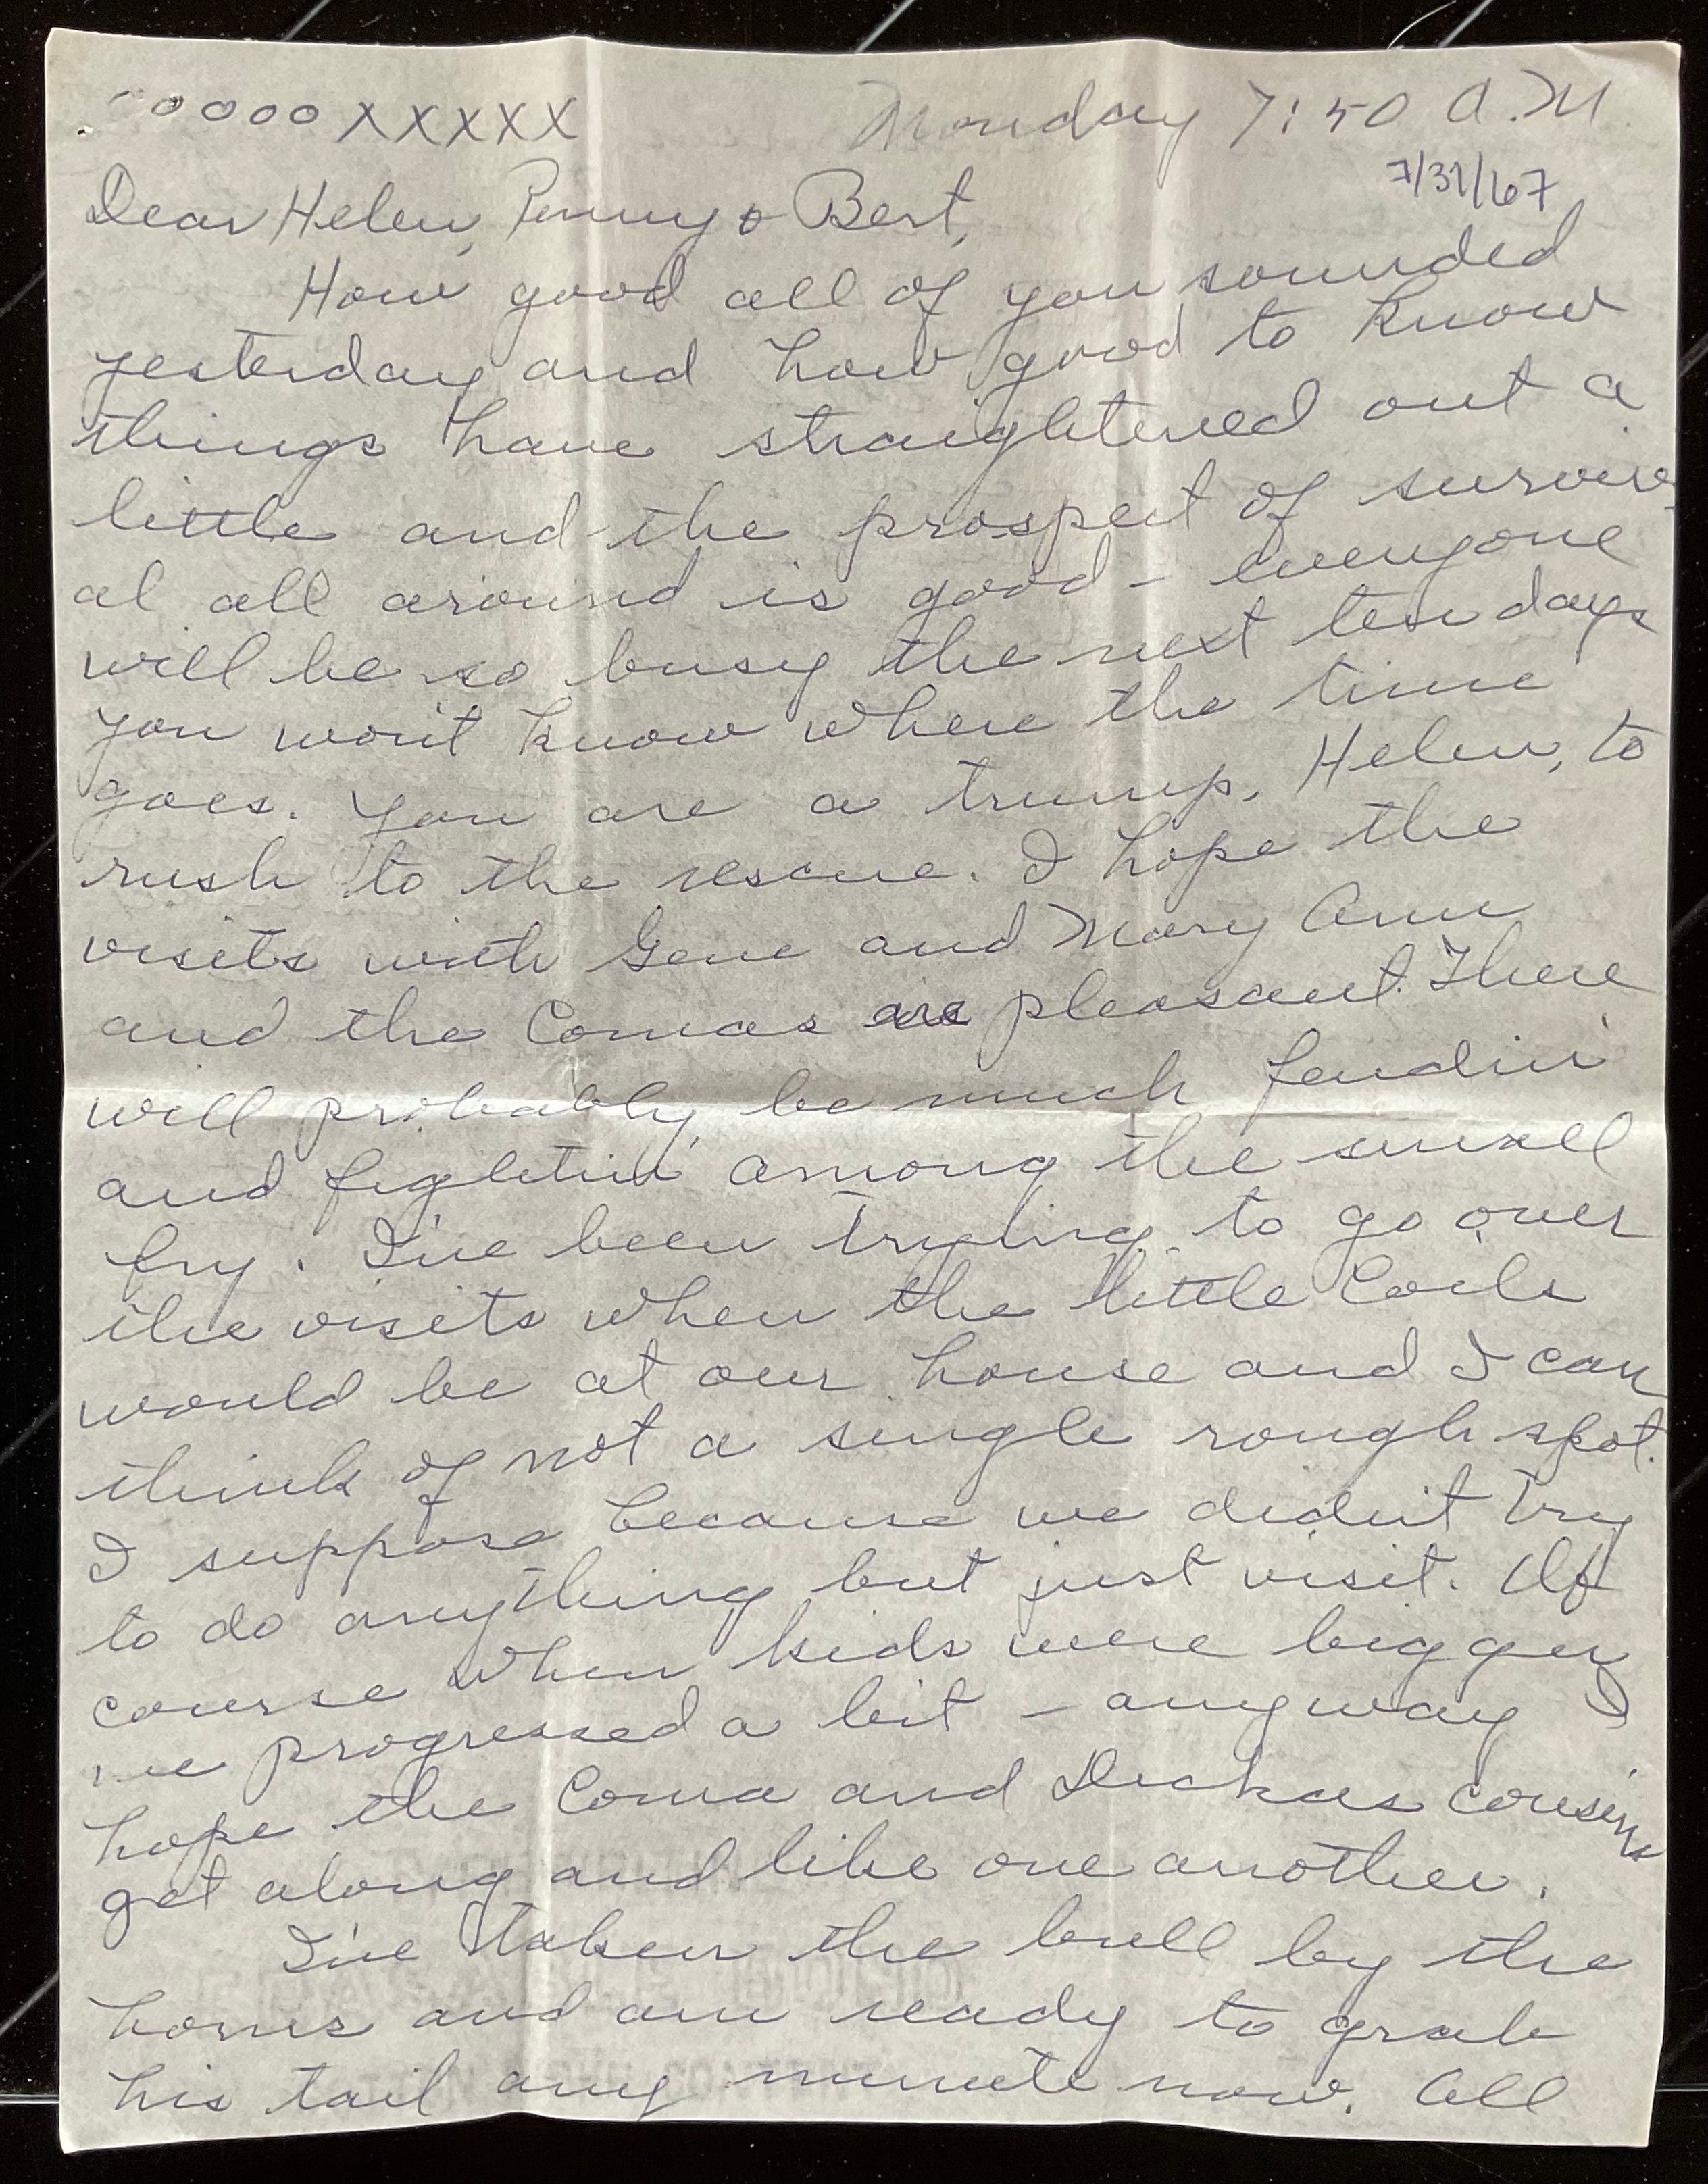 ooooo XXXXX Monday 7:50 A.M
7/31/67
Dear Helen, Penny & Bert,
How good all of you sounded
yesterday and how good to know
things have straightened out a
little and the prospect of surviv-
al all around is good - everyone
will be so busy the next ten days
you won't know where the time
goes. You are a trump, Helen, to
rush to the rescue. I hope the
visits with Gene and Mary Ann
and the Comas are pleasant. There
will probably be much feudin'
and fightin' among the small
fry. I've been trying to go over
the visits when the little Coils
would be at our house and I can
think of not a single rough spot.
I suppose because we didn't try
to do anything but just visit. Of
course when kids were bigger
we progressed a bit - anyway I
hope the Coma and Dickas cousins
get along and like one another.
I've taken the bull by the
horns and am ready to grab
his tail any minute now. All